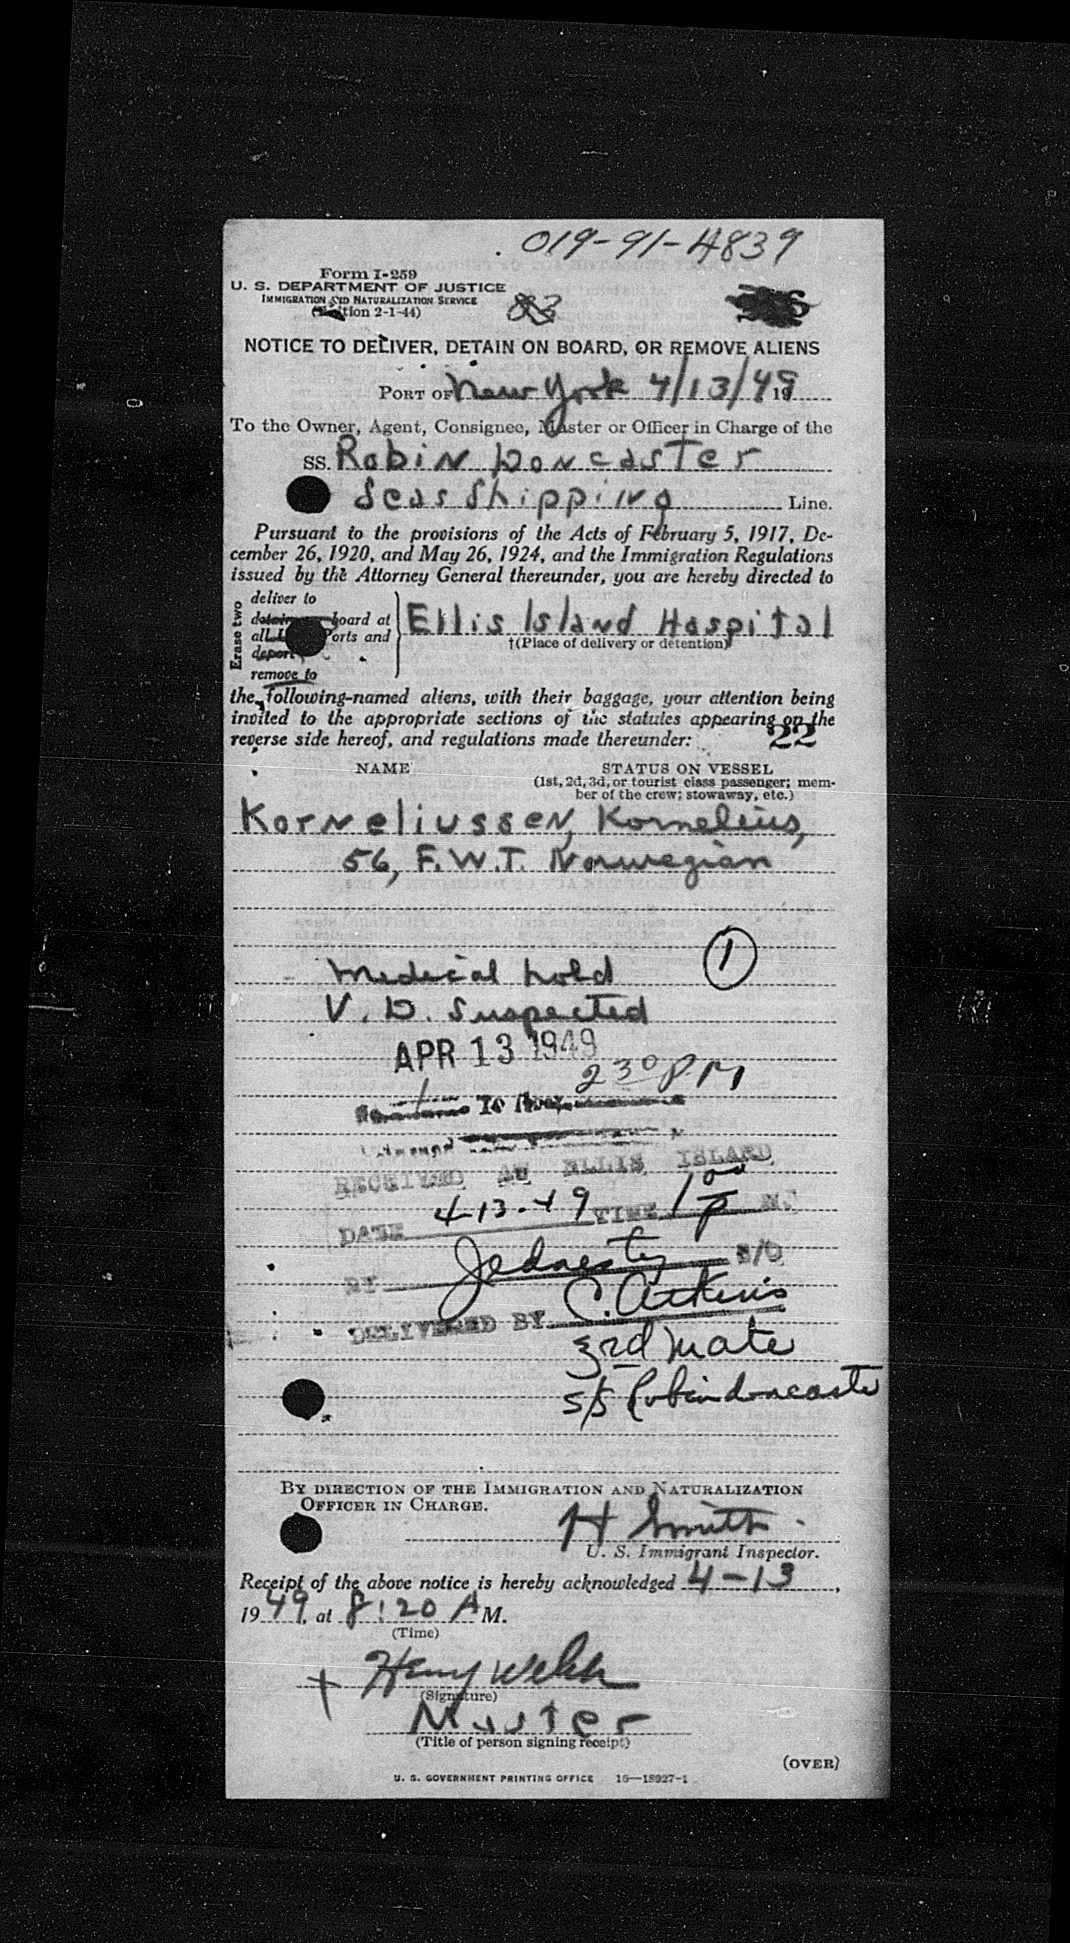 019-91-4839
Form I-259
U. S. DEPARTMENT OF JUSTICE
IMMIGRATION AND NATURALIZATION SERVICE
(Edition 2-1-44)
83
NOTICE TO DELIVER, DETAIN ON BOARD, OR REMOVE ALIENS
PORT OF New York 4/13/49 19
To the Owner, Agent, Consignee, Master or Officer in Charge of the
SS. Robin Doncaster
Seas Shipping Line.
Pursuant to the provisions of the Acts of February 5, 1917, De-
cember 26, 1920, and May 26, 1924, and the Immigration Regulations
issued by the Attorney General thereunder, you are hereby directed to
Erase two
deliver to
detain board at
all Ports and
deport
remove to
Ellis Island Hospital
†(Place of delivery or detention)
the following-named aliens, with their baggage, your attention being
invited to the appropriate sections of the statutes appearing on the
reverse side hereof, and regulations made thereunder:
22
NAME STATUS ON VESSEL
(1st, 2d, 3d, or tourist class passenger; mem-
ber of the crew; stowaway, etc.)
Korneliussen, Kornelius,
56, F.W.T. Norwegian
1
Medical hold
V. D. Suspected
APR 13 1949
2 30 P M
To
RECEIVED AT ELLIS ISLAND
DATE 4-13-49 TIME 1 00 P M
BY S/O
DELIVERED BY C. Atkins
3rd Mate
S/S Robin Doncaster
BY DIRECTION OF THE IMMIGRATION AND NATURALIZATION
OFFICER IN CHARGE.
H Smith
U. S. Immigrant Inspector.
Receipt of the above notice is hereby acknowledged 4-13,
1949, at 8:20 A M.
(Time)
+ Henry Webb
(Signature)
Master
(Title of person signing receipt)
(OVER)
U. S. GOVERNMENT PRINTING OFFICE 16—18927-1